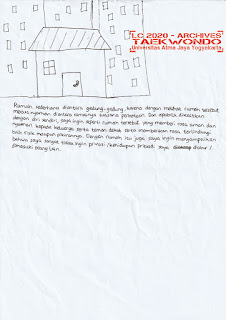 LC 2020 - ARCHIVES
TAEKWONDO
Universitas Atma Jaya Yogyakarta
Rumah sederhana diantara gedung-gedung, karena dengan melihat rumah tersebut
merasa nyaman diantara ramainya suasana perkotaan. Dan apabila dikaitkan
dengan diri sendiri, saya ingin seperti rumah tersebut yang memberi rasa aman dan
nyaman kepada keluarga serta teman dekat serta memberikan rasa terlindungi
baik fisik maupun pikirannya. Dengan rumah itu juga saya ingin menyampaikan
bahwa saya sangat tidak ingin privasi / kehidupan pribadi saya diatur /
dimasuki orang lain.